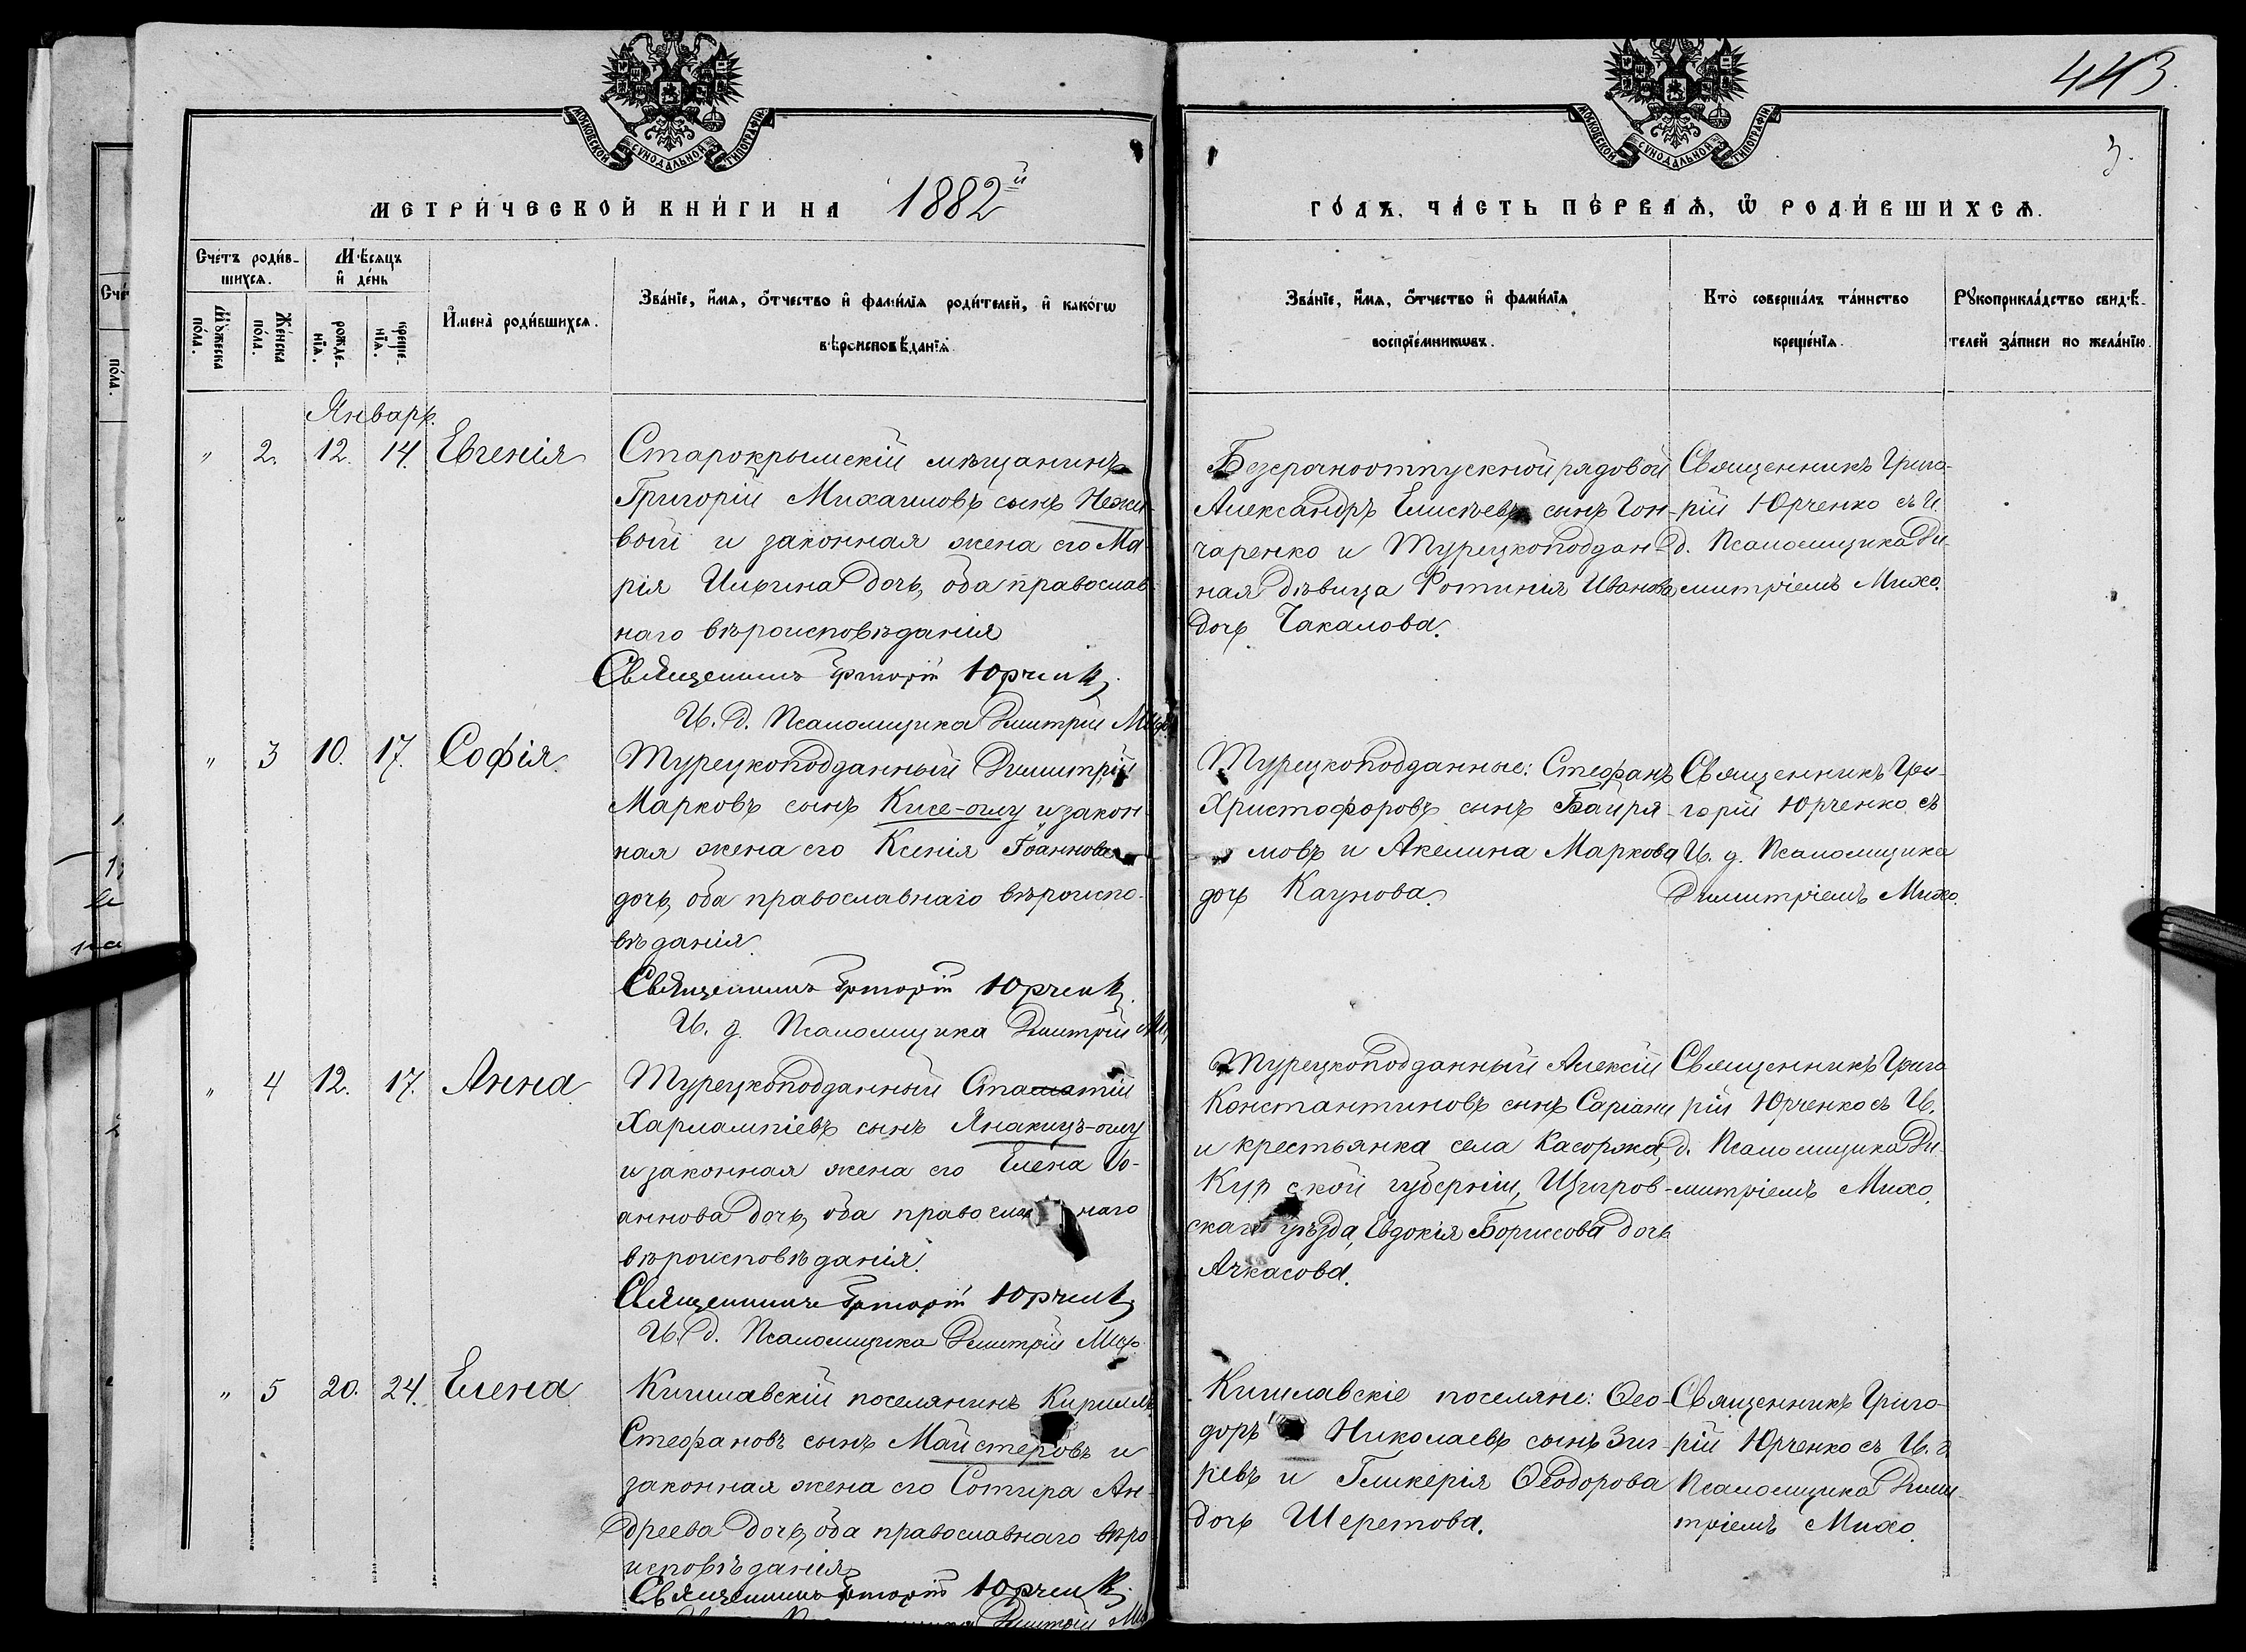 443.
3.
МОСКОВСКОЙ СѴНОДАЛЬНОЙ ТИПОГРАФІИ
МОСКОВСКОЙ СѴНОДАЛЬНОЙ ТИПОГРАФІИ
МЕТРИ́ЧЕСКОЙ КНИ́ГИ НА 1882й
ГО́ДЪ, ЧА́СТЬ ПЕ́РВАѦ, Ѿ РОДИ́ВШИХСѦ.
Сче́тъ роди́в-
шихсѧ.
Мѣ́сѧцъ
и҆ де́нь
Мꙋ́жеска
по́ла.
Же́нска
по́ла.
рожде-
нїѧ.
креще-
нїѧ.
И҆мена̀ роди́вшихсѧ.
Зва́нїе, и҆́мѧ, ѻ҆́тчество и҆ фами́лїѧ роди́телей, и҆ како́гѡ
вѣроисповѣ́данїѧ.
Зва́нїе, и҆́мѧ, ѻ҆́тчество и҆ фами́лїѧ
воспрїе́мникѡвъ.
Кто̀ соверша́лъ та́инство
креще́нїѧ.
Рꙋкоприкла́дство свидѣ́-
телей за́писи по жела́нїю.
Январь.
" 2. 12. 14. Евгенія
Старокрымскій мѣщанинъ
Григорій Михаиловъ сынъ Нежи-
вой и законная жена его Ма-
рія Ильина дочь, оба православ-
наго вѣроисповѣданія
Священникъ Григорій Юрченко
И. д. Псаломщика Дмитрій Михо
Безсрочноотпускной рядовой
Александръ Елисѣевъ сынъ Гон-
чаренко и Турецкоподдан-
ная дѣвица Фотинія Иванова
дочь Чакалова.
Священникъ Григо-
рій Юрченко съ И.
д. Псаломщика Ди-
митріемъ Михо.
" 3 10. 17. Софія
Турецкоподданный Димитрій
Марковъ сынъ Кисе-оглу и закон-
ная жена его Ксенія Іоаннова
дочь, оба православнаго вѣроиспо-
вѣданія.
Священникъ Григорій Юрченко
И. д. Псаломщика Дмитрій Ми
Турецкоподданные: Стефанъ
Христофоровъ сынъ Баиря-
мовъ и Акелина Маркова
дочь Каунова.
Священникъ Гри-
горій Юрченко съ
И. д. Псаломщика
Димитріемъ Михо.
" 4 12. 17. Анна
Турецкоподданный Стаматій
Харлампіевъ сынъ Янакицъ-оглу
и законная жена его Елена Іо-
аннова дочь, оба православнаго
вѣроисповѣданія.
Священникъ Григорій Юрченко
И. д. Псаломщика Дмитрій Михо
Турецкоподданный Алексій
Константиновъ сынъ Саріани
и крестьянка села Касоржа,
Курской губерніи, Щигров-
скаго уѣзда, Евдокія Борисова дочь
Ачкасова.
Священникъ Григо
рій Юрченко съ И.
д. Псаломщика Ди-
митріемъ Михо.
" 5 20. 24. Елена
Кишлавскій поселянинъ Кириллъ
Стефановъ сынъ Майстеровъ и
законная жена его Сотира Ан-
дреева дочь, оба православнаго вѣро
исповѣданія
Священникъ Григорій Юрченко
Дмитрій Ми
Кишлавскіе поселяне: Ѳео-
доръ Николаевъ сынъ Зиг-
ревъ и Гликерія Ѳеодорова
дочь Шеретова.
Священникъ Григо-
рій Юрченко съ И. д.
Псаломщика Дими-
тріемъ Михо.